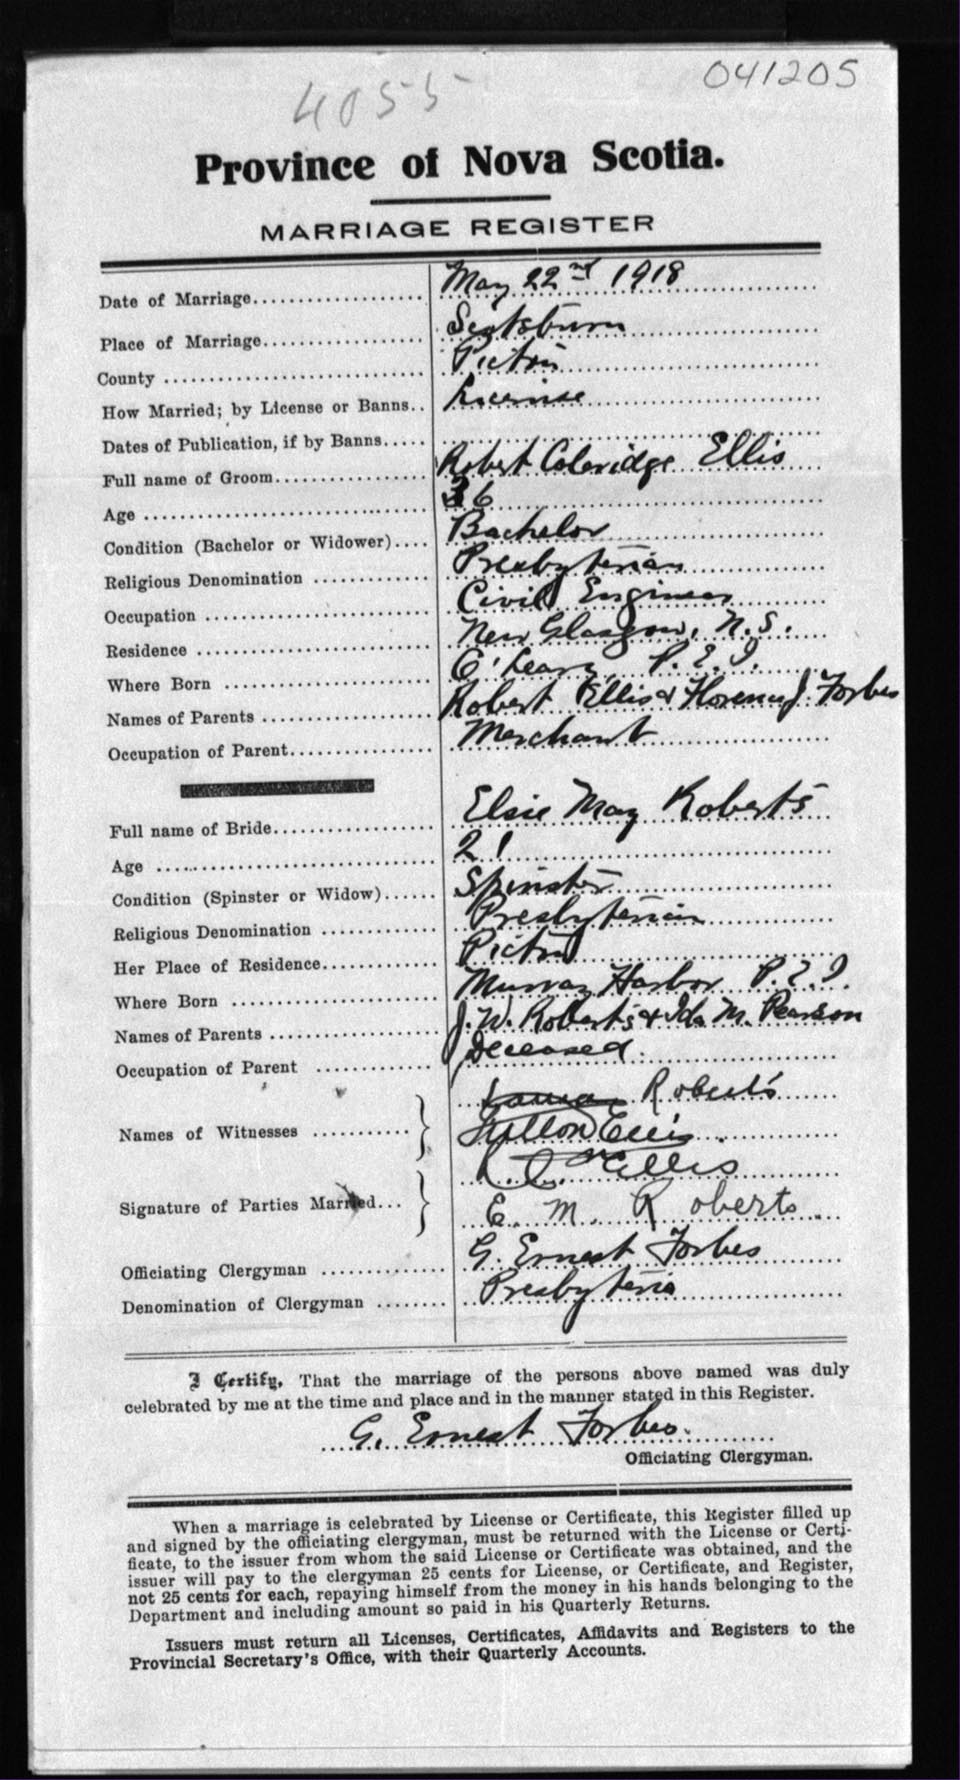 041205
4055
Province of Nova Scotia.
MARRIAGE REGISTER
Date of Marriage.................... May 22nd 1918
Place of Marriage.................... Scotsburn
County .................... Pictou
How Married; by License or Banns.. License
Dates of Publication, if by Banns.....
Full name of Groom.................... Robert Coleridge Ellis
Age .................... 36
Condition (Bachelor or Widower).... Bachelor
Religious Denomination ............. Presbyterian
Occupation .................... Civil Engineer
Residence .................... New Glasgow, N.S.
Where Born .................... O'Leary, P.E.I.
Names of Parents .................... Robert Ellis & Florence J. Forbes
Occupation of Parent.................... Merchant
Full name of Bride.................... Elsie May Roberts
Age .................... 21
Condition (Spinster or Widow)...... Spinster
Religious Denomination ............. Presbyterian
Her Place of Residence............. Pictou
Where Born .................... Murray Harbor P.E.I.
Names of Parents .................... J. W. Roberts & Ida M. Pearson
Occupation of Parent ............. Deceased.
Roberts
Names of Witnesses ........... } Ellis
R. C. Ellis
Signature of Parties Married... } E. M. Roberts
Officiating Clergyman ............. G. Ernest Forbes
Denomination of Clergyman ........ Presbyterian
I Certify, That the marriage of the persons above named was duly
celebrated by me at the time and place and in the manner stated in this Register.
G. Ernest Forbes.
Officiating Clergyman.
When a marriage is celebrated by License or Certificate, this Register filled up
and signed by the officiating clergyman, must be returned with the License or Certi-
ficate, to the issuer from whom the said License or Certificate was obtained, and the
issuer will pay to the clergyman 25 cents for License, or Certificate, and Register,
not 25 cents for each, repaying himself from the money in his hands belonging to the
Department and including amount so paid in his Quarterly Returns.
Issuers must return all Licenses, Certificates, Affidavits and Registers to the
Provincial Secretary's Office, with their Quarterly Accounts.